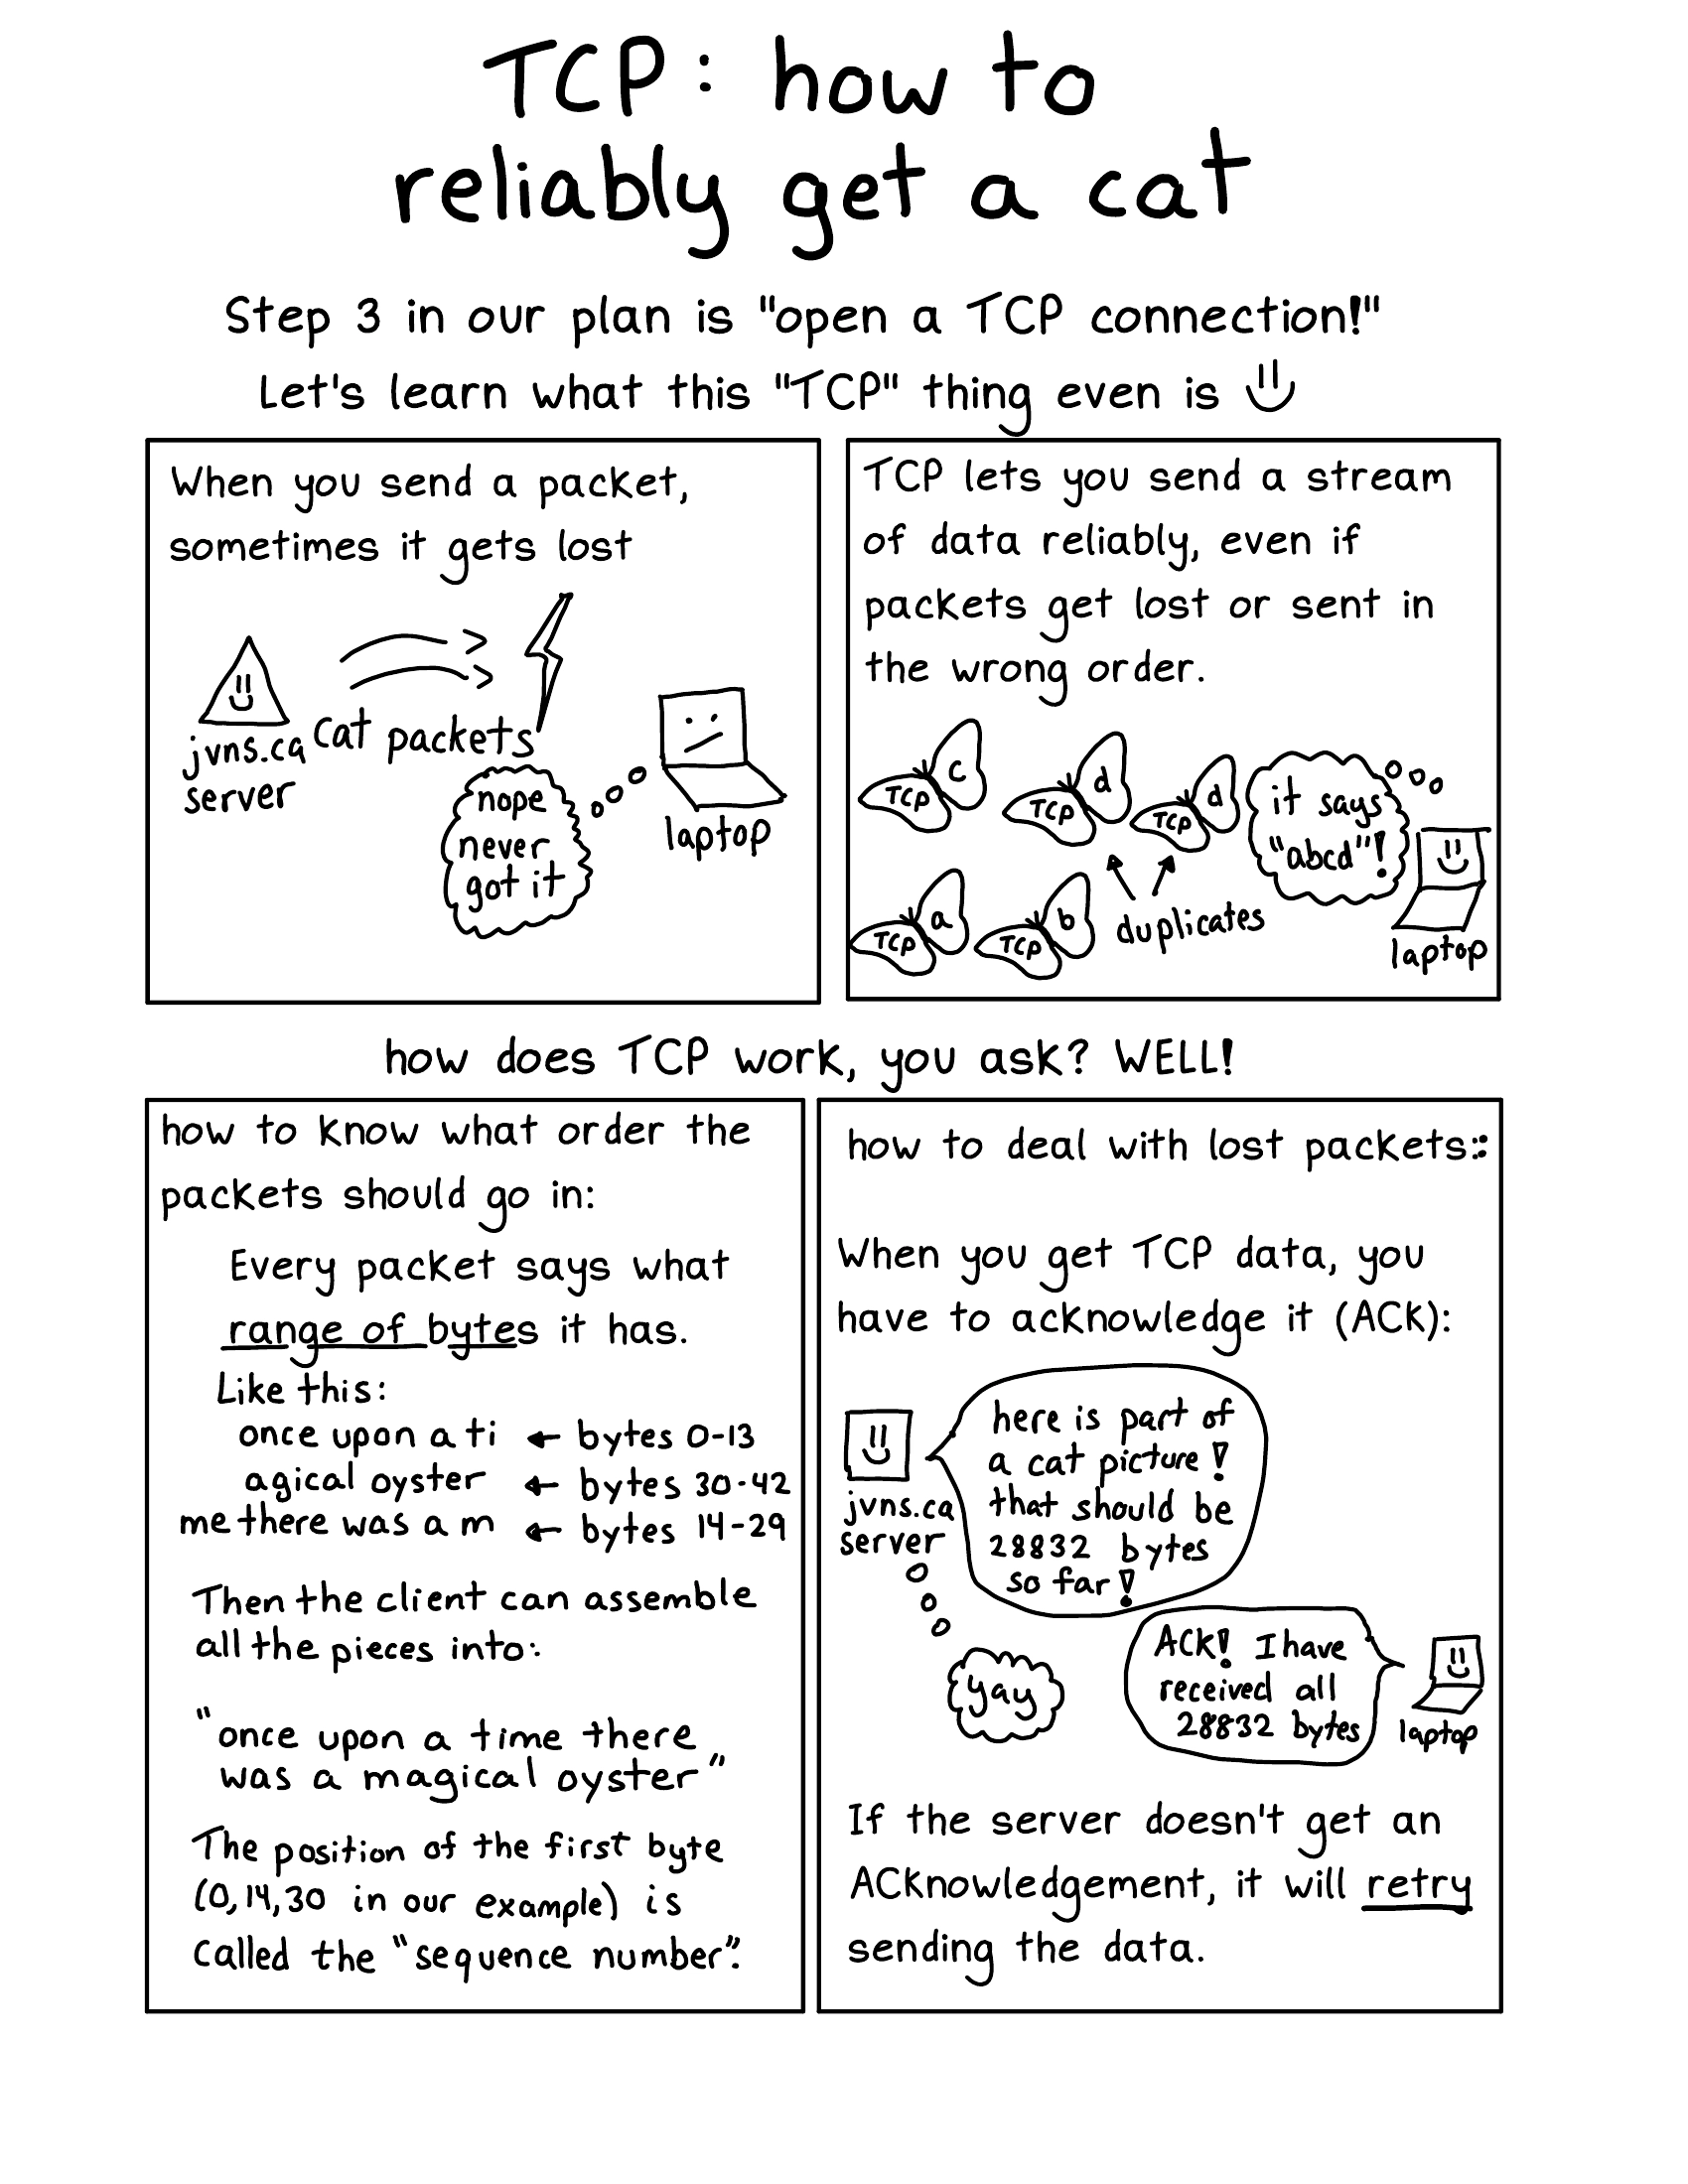 TCP: how to
reliably get a cat
Step 3 in our plan is "open a TCP connection!"
Let's learn what this "TCP" thing even is
When you send a packet,
sometimes it gets lost
jvns.ca
server
cat packets
nope
never
got it
laptop
TCP lets you send a stream
of data reliably, even if
packets get lost or sent in
the wrong order.
TCP c
TCP d
TCP d
TCP a
TCP b
duplicates
it says
"abcd"!
laptop
how does TCP work, you ask? WELL!
how to know what order the
packets should go in:
Every packet says what
range of bytes it has.
Like this:
once upon a ti ← bytes 0-13
agical oyster ← bytes 30-42
me there was a m ← bytes 14-29
Then the client can assemble
all the pieces into:
"once upon a time there
was a magical oyster"
The position of the first byte
(0,14,30 in our example) is
called the "sequence number".
how to deal with lost packets::
When you get TCP data, you
have to acknowledge it (ACK):
jvns.ca
server
here is part of
a cat picture!
that should be
28832 bytes
so far!
yay
ACK! I have
received all
28832 bytes
laptop
If the server doesn't get an
ACKnowledgement, it will retry
sending the data.